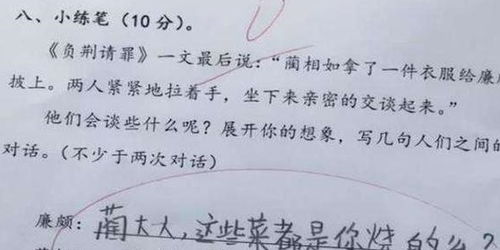 八、小练笔（10分）。
《负荆请罪》一文最后说：“蔺相如拿了一件衣服给廉
披上。两人紧紧地拉着手，坐下来亲密的交谈起来。”
他们会谈些什么呢？展开你的想象，写几句人们之间的
对话。（不少于两次对话）
廉颇：蔺大大，这些菜都是你烧的么？